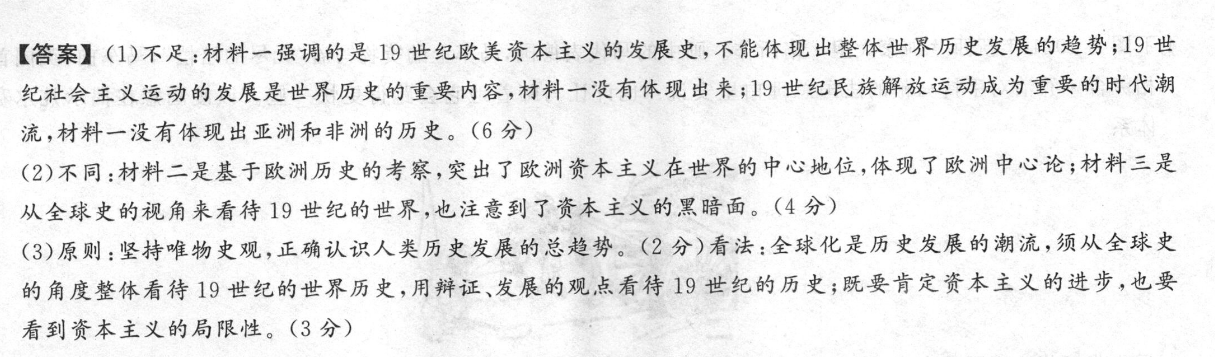 【答案】(1)不足:材料一强调的是 19 世纪欧美资本主义的发展史,不能体现出整体世界历史发展的趋势;19 世
纪社会主义运动的发展是世界历史的重要内容,材料一没有体现出来;19 世纪民族解放运动成为重要的时代潮
流,材料一没有体现出亚洲和非洲的历史。(6 分)
(2)不同:材料二是基于欧洲历史的考察,突出了欧洲资本主义在世界的中心地位,体现了欧洲中心论;材料三是
从全球史的视角来看待 19 世纪的世界,也注意到了资本主义的黑暗面。(4 分)
(3)原则:坚持唯物史观,正确认识人类历史发展的总趋势。(2 分)看法:全球化是历史发展的潮流,须从全球史
的角度整体看待 19 世纪的世界历史,用辩证、发展的观点看待 19 世纪的历史;既要肯定资本主义的进步,也要
看到资本主义的局限性。(3 分)